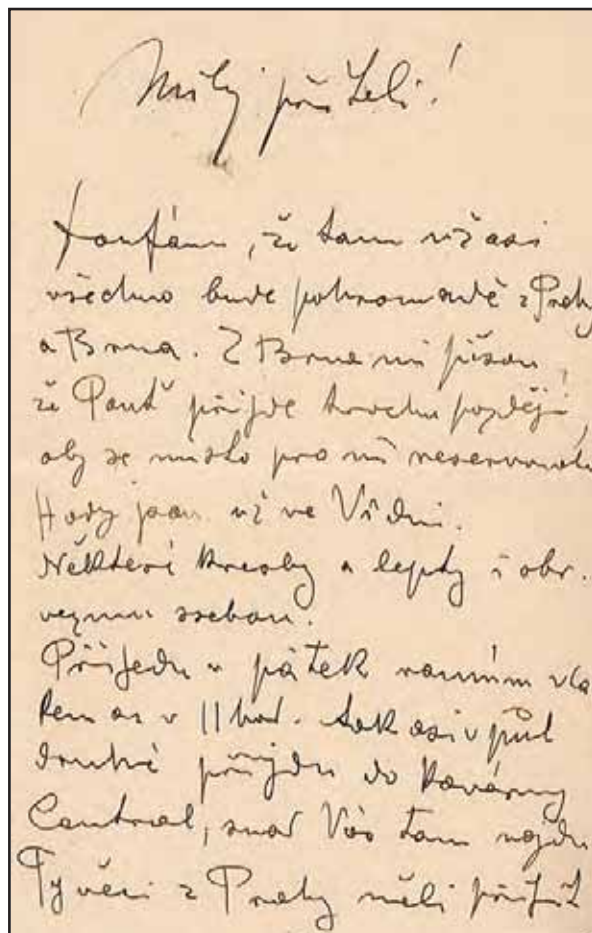 Milý příteli!
Doufám, že tam už asi
všechno bude pohromadě z Prahy
a Brna. Z Brna mi píšou,
že Poušť přijde trochu později,
aby se místo pro ni reservovalo
Hody jsou už ve Vídni.
Některé kresby a lepty i obr.
vezmu ssebou.
Přijedu v pátek ranním vla
kem as v 11 hod. tak asi v půl
druhé přijdu do kavárny
Central, snad Vás tam najdu
Ty věci z Prahy měli přijít